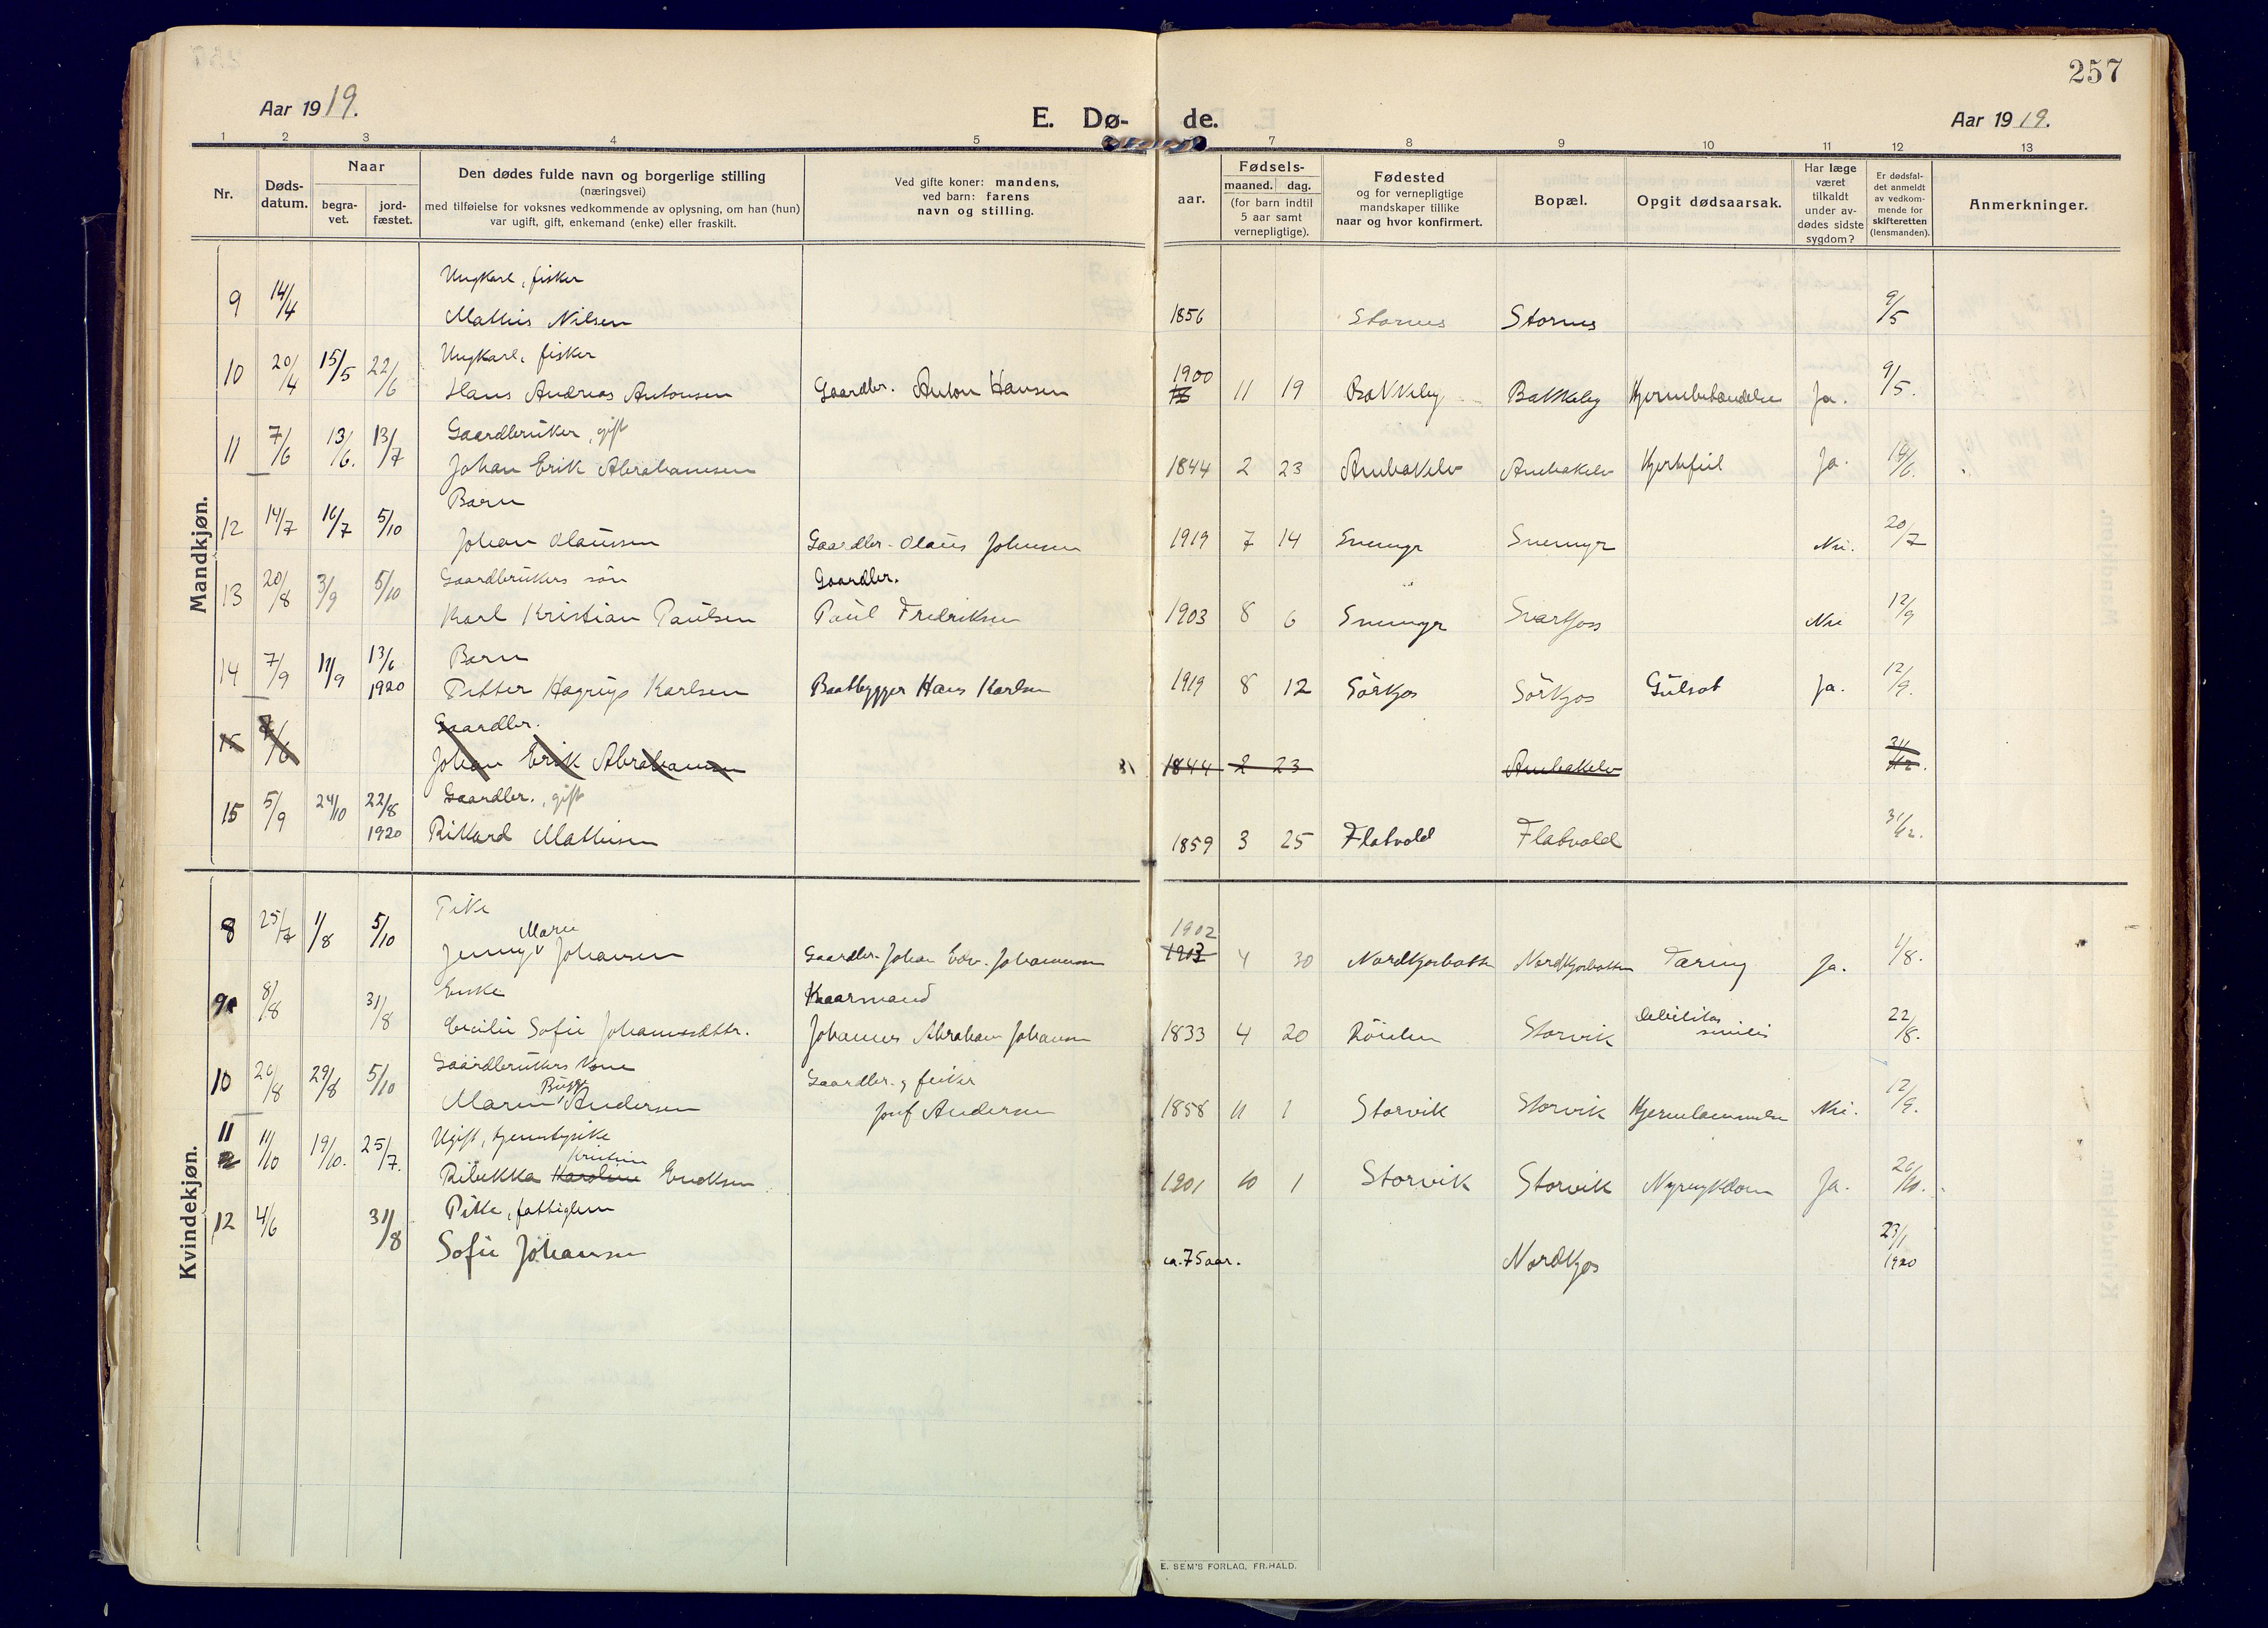 257
Aar 1919.
E. Dø- de.
Aar 1919.
1 2 3 4 5 7 8 9 10 11 12 13
Nr.
Døds-
datum.
Naar
begra-
vet.
jord-
fæstet.
Den dødes fulde navn og borgerlige stilling
(næringsvei)
med tilføielse for voksnes vedkommende av oplysning, om han (hun)
var ugift, gift, enkemand (enke) eller fraskilt.
Ved gifte koner: mandens,
ved barn: farens
navn og stilling.
Fødsels-
aar.
maaned. dag.
(for barn indtil
5 aar samt
vernepligtige).
Fødested
og for vernepligtige
mandskaper tillike
naar og hvor konfirmert.
Bopæl.
Opgit dødsaarsak.
Har læge
været
tilkaldt
under av-
dødes sidste
sygdom?
Er dødsfal-
det anmeldt
av vedkom-
mende for
skifteretten
(lensmanden).
Anmerkninger.
Mandkjøn.
Ungkarl, fisker
9 14/4 Mathis Nilsen 1856 Stornes Stornes 9/5
Ungkarl, fisker
10 20/4 15/5 22/6 Hans Andreas Antonsen Gaardbr. Anton Hansen 1900 11 19 Bakkeby Bakkeby Ja. 9/5.
Gaardbruker, gift
11 7/6 13/6. 13/7 Johan Erik Abrahamsen 1844 2 23 Ja.
Barn
12 14/7 16/7 5/10 Johan Olaussen Gaardbr. Olaus Johnsen 1919 7 14 Snemyr Snemyr Nei. 20/7
Gaardbrukers søn Gaardbr.
13 20/8 3/9 5/10 Karl Kristian Paulsen Paul Fredriksen 1903 8 6 Snemyr Svartfoss Nei 12/9
Barn
14 7/9 11/9 13/6 1920 Petter Hagrup Karlsen Baatbygger Hans Karlsen 1919 8 12 Sørkjos Sørkjos Gulsot Ja. 12/9.
Gaardbr.
15 7/6 Johan Erik Abrahamsen 1844 2 23 31/12.
Gaardbr., gift
15 5/9 24/10 22/8 1920 Rikard Mathisen 1859 3 25 Flatvold Flatvold 31/12.
Kvindekjøn.
Pike
8 25/7 1/8 5/10 Jenny Marie Johansen Gaardbr. Johan Edv. Johannesen 1902 1903 4 30 Nordkjosbotten Nordkjosbotten Tæring Ja. 1/8.
Enke Kaarmand
9 8/8 31/8 Cecilie Sofie Johannesdttr. Johannes Abraham Johansen 1833 4 20 Storvik Debilitas senilis 22/8.
Gaardbrukers kone Gaardbr. & fisker
10 26/8 29/8 5/10 Maren Bugge Andersen Josef Andersen 1858 11 1 Storvik Storvik Hjernelammelse Nei. 12/9.
Ugift, tjenestepike
11 11/10 19/10. 25/7. Ribekka Karoline Kristine Eriksen 1901 10 1 Storvik Storvik Nyresykdom Ja. 26/10.
Pike, fattiglem
12 4/6 31/8 Sofie Johansen ca. 75 aar. Nordkjos 23/1 1920
E. SEM'S FORLAG, FR.HALD.